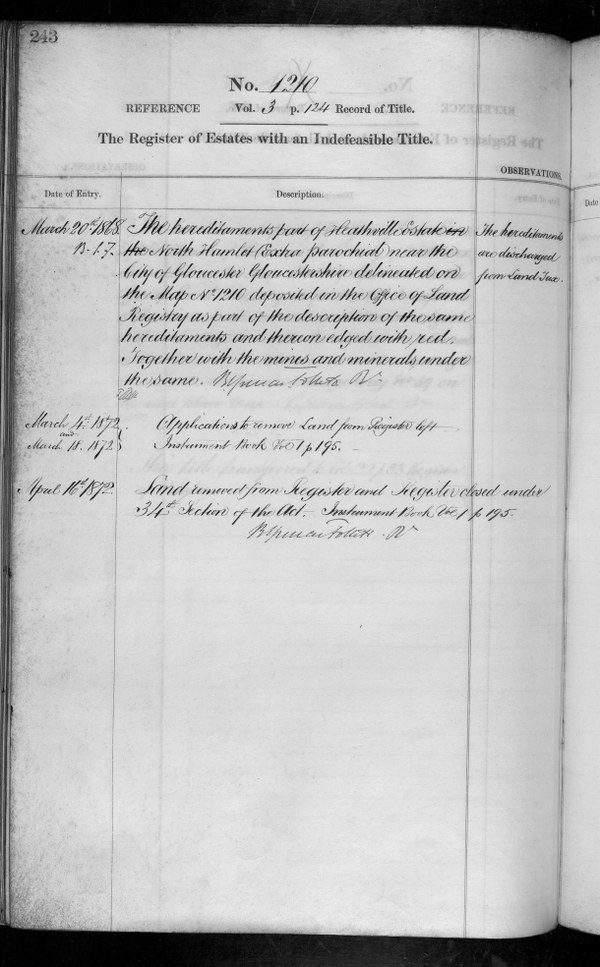 243
No. 1210
REFERENCE Vol. 3 p. 124 Record of Title.
The Register of Estates with an Indefeasible Title.
OBSERVATIONS.
Date of Entry.
Description.
Date
March 20th 1868.
The hereditaments part of Heathville Estate in
The hereditaments
B. 1. 7.
the North Hamlet (Extra parochial) near the
are discharged
City of Gloucester Gloucestershire delineated on
from Land Tax.
the Map No 1210 deposited in the Office of Land
Registry as part of the description of the same
hereditaments and thereon edged with red.
Together with the mines and minerals under
the same. Follett Rr
March 4th 1872
Applications to remove Land from Register left
and
March 18. 1872
Instrument Book Vol 1 p 195.
April 16th 1872.
Land removed from Register and Register closed under
34th Section of the Act. Instrument Book Vol 1 p 195.
Follett Rr